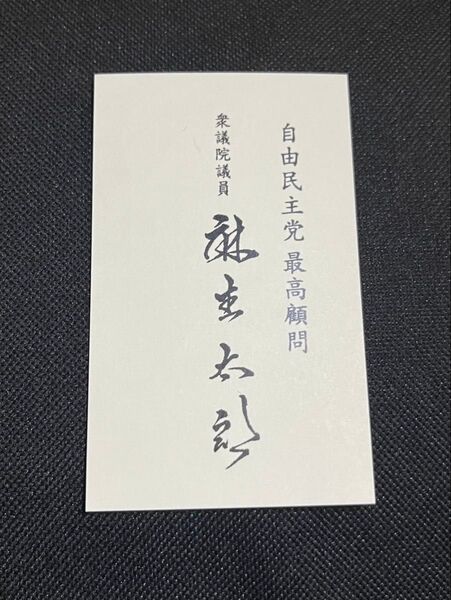 自由民主党 最高顧問
衆議院議員 麻生太郎